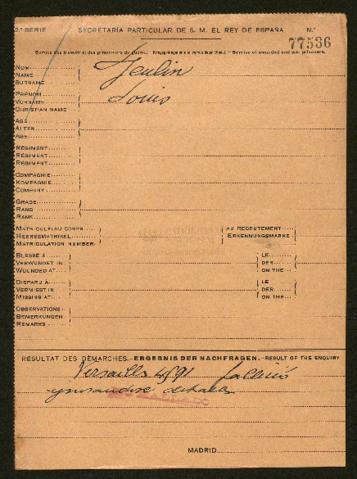 2ª SERIE SECRETARÍA PARTICULAR DE S. M. EL REY DE ESPAÑA N.º
77536
Service des blessés et des prisonniers de guerre. Service of wounded and war prisoners.
NOM
NAME
SURNAME
Jeulin
PRÉNOM
VORNAME
CHRISTIAN NAME
Louis
AGE
ALTER
AGE
RÉGIMENT
REGIMENT
REGIMENT
COMPAGNIE
KOMPAGNIE
COMPANY
GRADE
RANG
RANK
MATRICUL EAU CORPS
HEERESMATRIKEL
MATRICULATION NUMBER
AU RECRUTEMENT
ERKENNUNGSMARKE
BLESSÉ À
VERWUNDET IN
WOUNDED AT
LE
DER
ON THE
DISPARU À
VERMISST IN
MISSING AT
LE
DER
ON THE
OBSERVATIONS
BEMERKUNGEN
REMARKS
RESULTAT DES DÉMARCHES. ERGEBNIS DER NACHFRAGEN. RESULT OF THE ENQUIRY
Versailles
MADRID